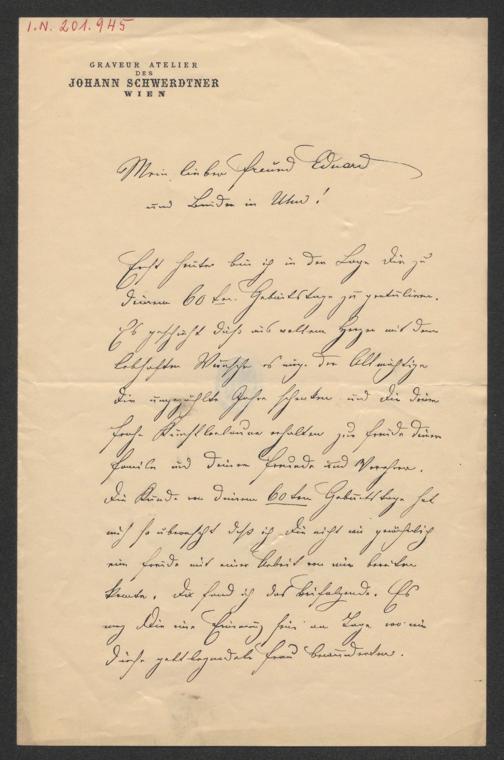 I.N. 201.945
GRAVEUR ATELIER
DES
JOHANN SCHWERDTNER
WIEN
Mein lieber Freund Eduard
und Bruder in Uhu!
Erst heute bin ich in der Lage Dir zu
Deinem 60ten Geburtstage zu gratuliren.
Es geschieht dieß aus vollem Herzen mit dem
lebhaften Wunsche es möge der Allmächtige
Dir ungezählte Jahre schenken und Dir deine
frohe Künstlerlaune erhalten zur Freude deiner
Familie und deiner Freunde und Verehrer.
Die Kunde von deinem 60ten Geburtstage hat
mich so überrascht daß ich Dir nicht wie gewöhnlich
eine Freude mit einer Arbeit von mir bereiten
konnte. Da fand ich das beifolgende. Es
mag Dir eine Erinnerung sein an Tage wo wir
diese Frau bewunderten.